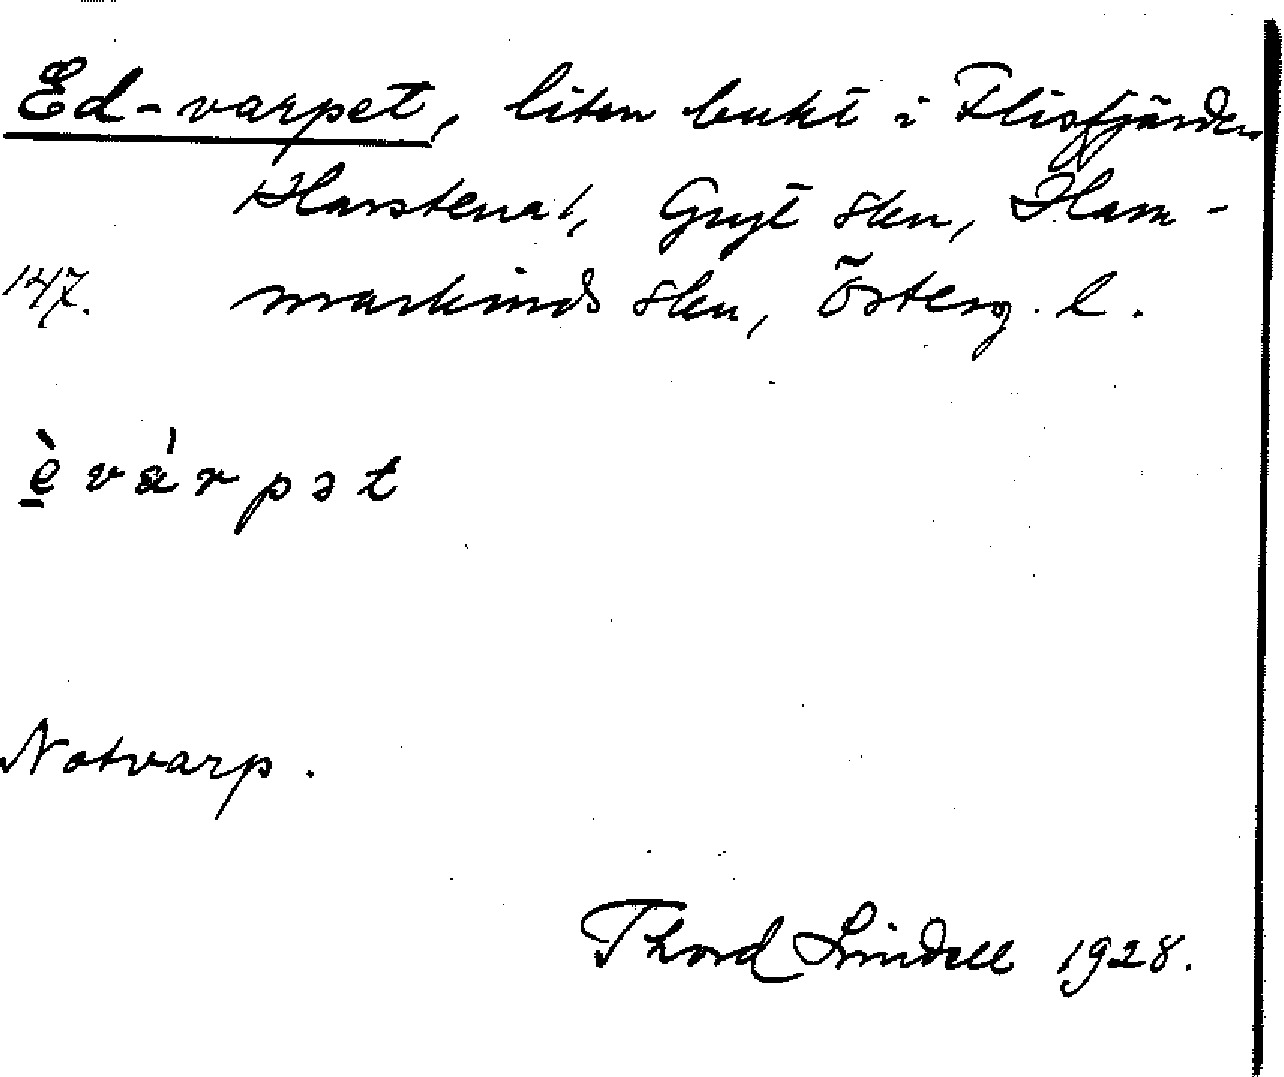 Ed-varpet, liten bukt i Flisfjärden
Harstena 1, Gryt skn, Ham-
147. markinds skn, Österg. l.
è v á r p ə t
Notvarp.
Thord Lindell 1928.